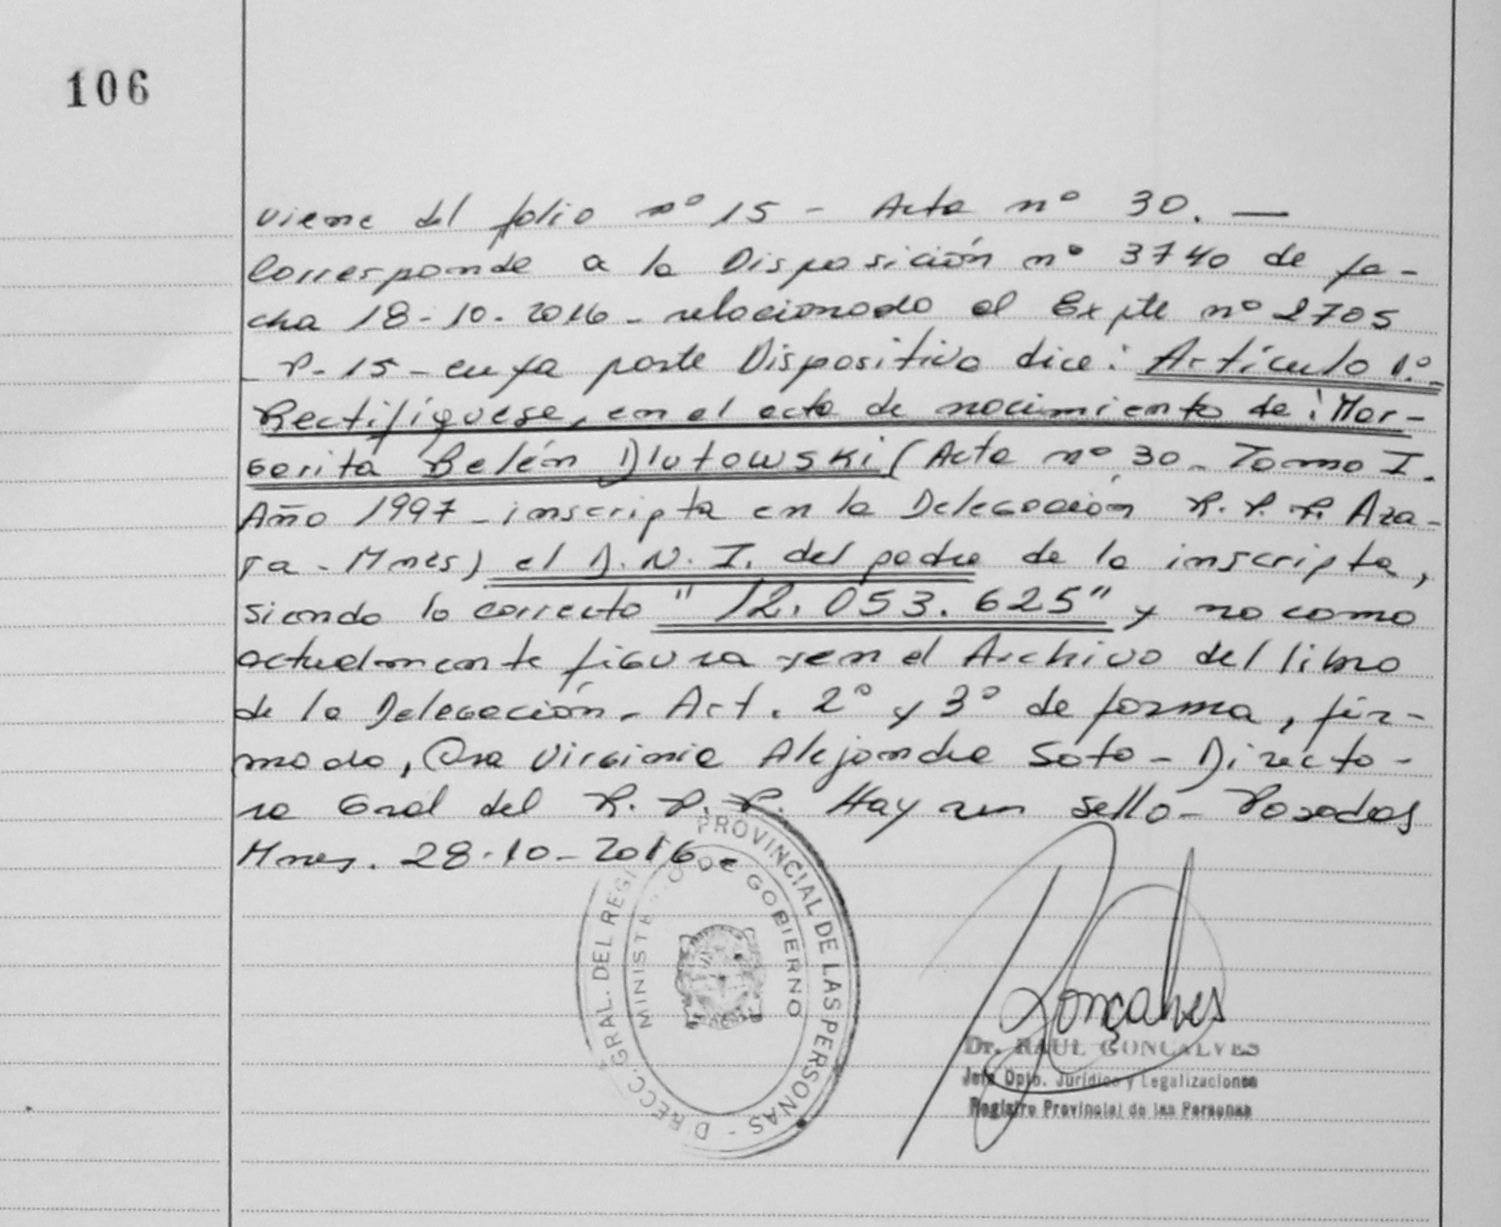 106
viene del folio nº 15 - Acta nº 30. —
Corresponde a la Disposición nº 3740 de fe-
cha 18-10-2016 - relacionado al Expte nº 2705
- P-15 - cuya parte Dispositiva dice: Artículo 1º.
Rectifíquese, en el acta de nacimiento de: Mar-
garita Belén Dlutowski (Acta nº 30 - Tomo I.
Año 1997 - inscripta en la Delegación R.P.P. Aza-
ra - Mnes) el D.N.I. del padre de la inscripta,
siendo lo correcto "12.053.625" y no como
actualmente figura y en el Archivo del libro
de la Delegación. Art. 2º y 3º de forma, fir-
mado, Dra Virginia Alejandra Soto - Directo-
ra Gral del R.P.P. Hay un sello - Posadas
Mnes. 28-10-2016.
DIRECC. GRAL. DEL REGI PROVINCIAL DE LAS PERSONAS -
MINISTE O DE GOBIERNO
Gonçalves
Dr. RAUL GONCALVES
Jefe Dpto. Jurídico y Legalizaciones
Registro Provincial de las Personas